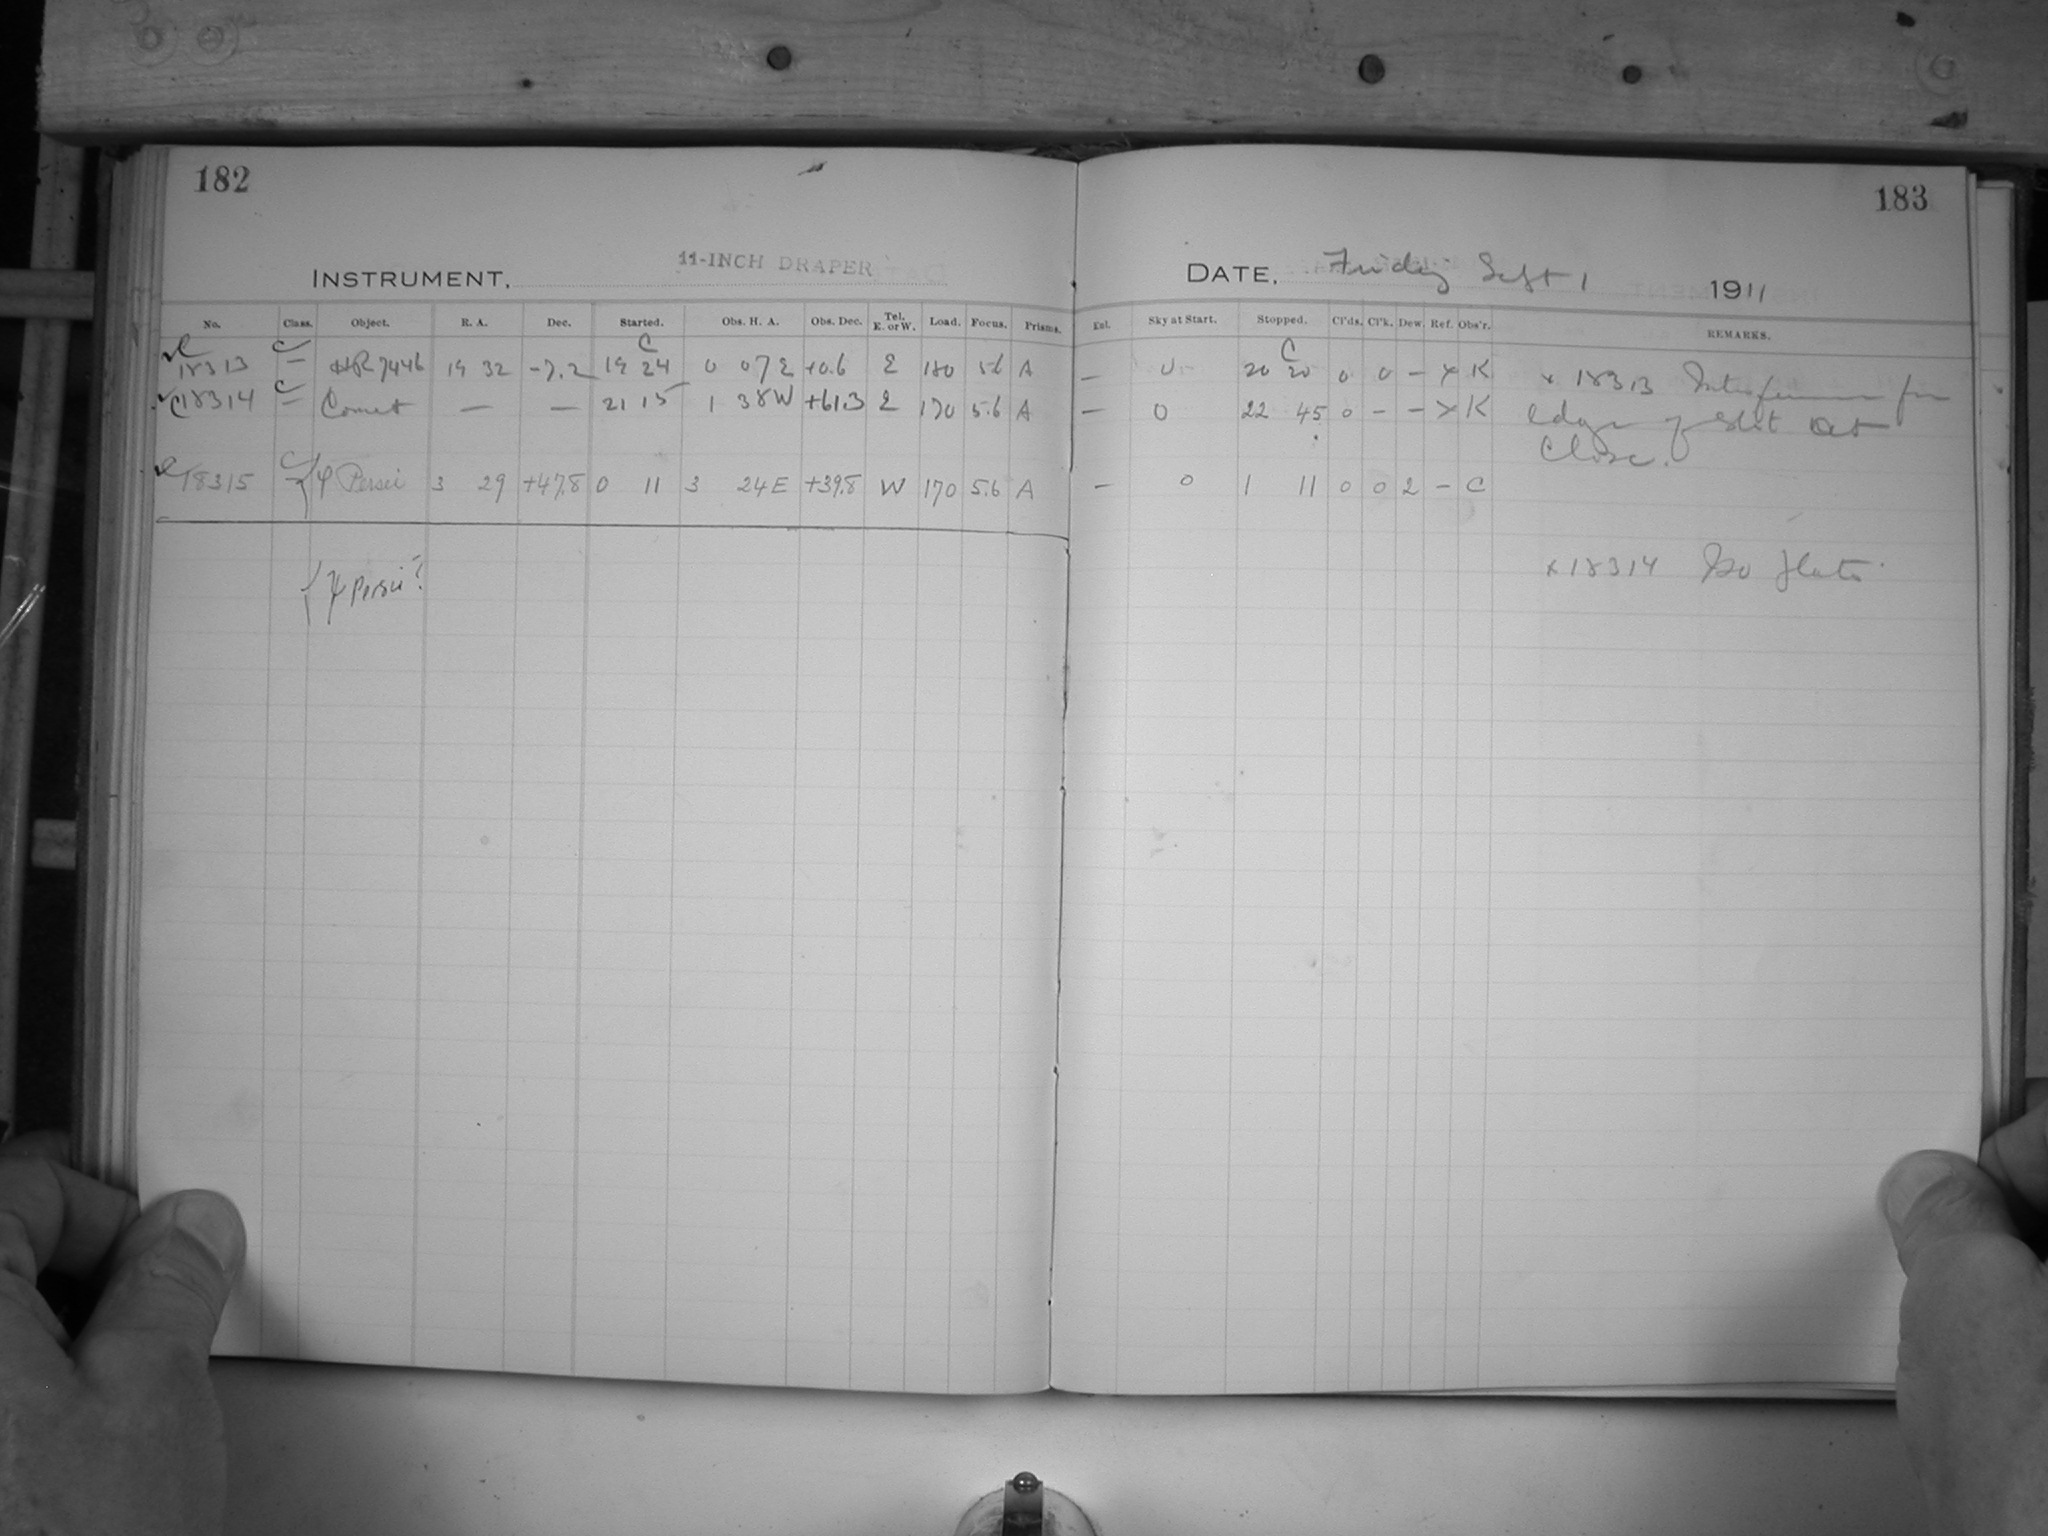 182
183
INSTRUMENT, 11-INCH DRAPER
DATE, Friday Sept 1 1911
No. Class. Object. R. A. Dec. Started. Obs. H. A. Obs. Dec. Tel. E. or W. Load. Focus. Prisms. Enl. Sky at Start. Stopped. Cl'ds. Cl'k. Dew. Ref. Obs'r. REMARKS.
C C
18313 — HR 7446 19 32 -7.2 19 24 0 07 E +0.6 E 180 5.6 A — 0 20 20 0 0 — x K x 18313 Interference from
18314 — Comet — — 21 15 1 38 W +61.3 E 170 5.6 A — 0 22 45 0 — — x K edge of slit at
close.
18315 — { φ Persei 3 29 +47.8 0 11 3 24 E +39.8 W 170 5.6 A — 0 1 11 0 0 2 — C
{ ψ Persei?
x 18314 Iso plate